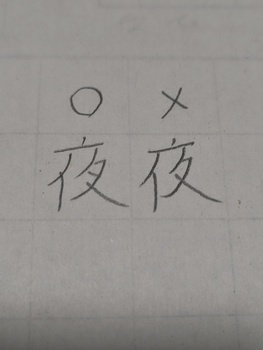 ○ ×
夜 夜